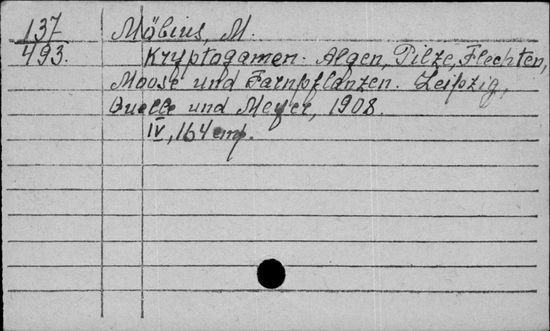 137 Möbius, M.
493. Kryptogamen: Algen, Pilze, Flechten,
Moose und Farnpflanzen. Leipzig,
Quelle und Meyer, 1908.
IV, 164 стр.